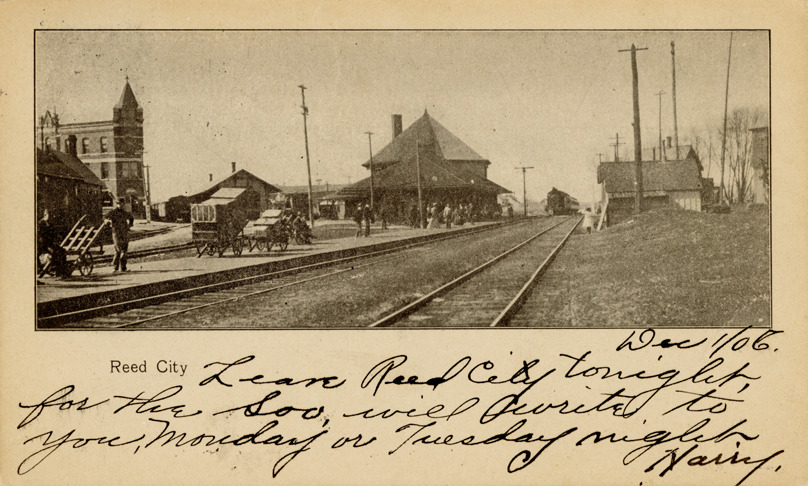 Dec 1/06.
Reed City Leave Reed City tonight,
for the Soo, will write to
you, Monday or Tuesday night
Harry.